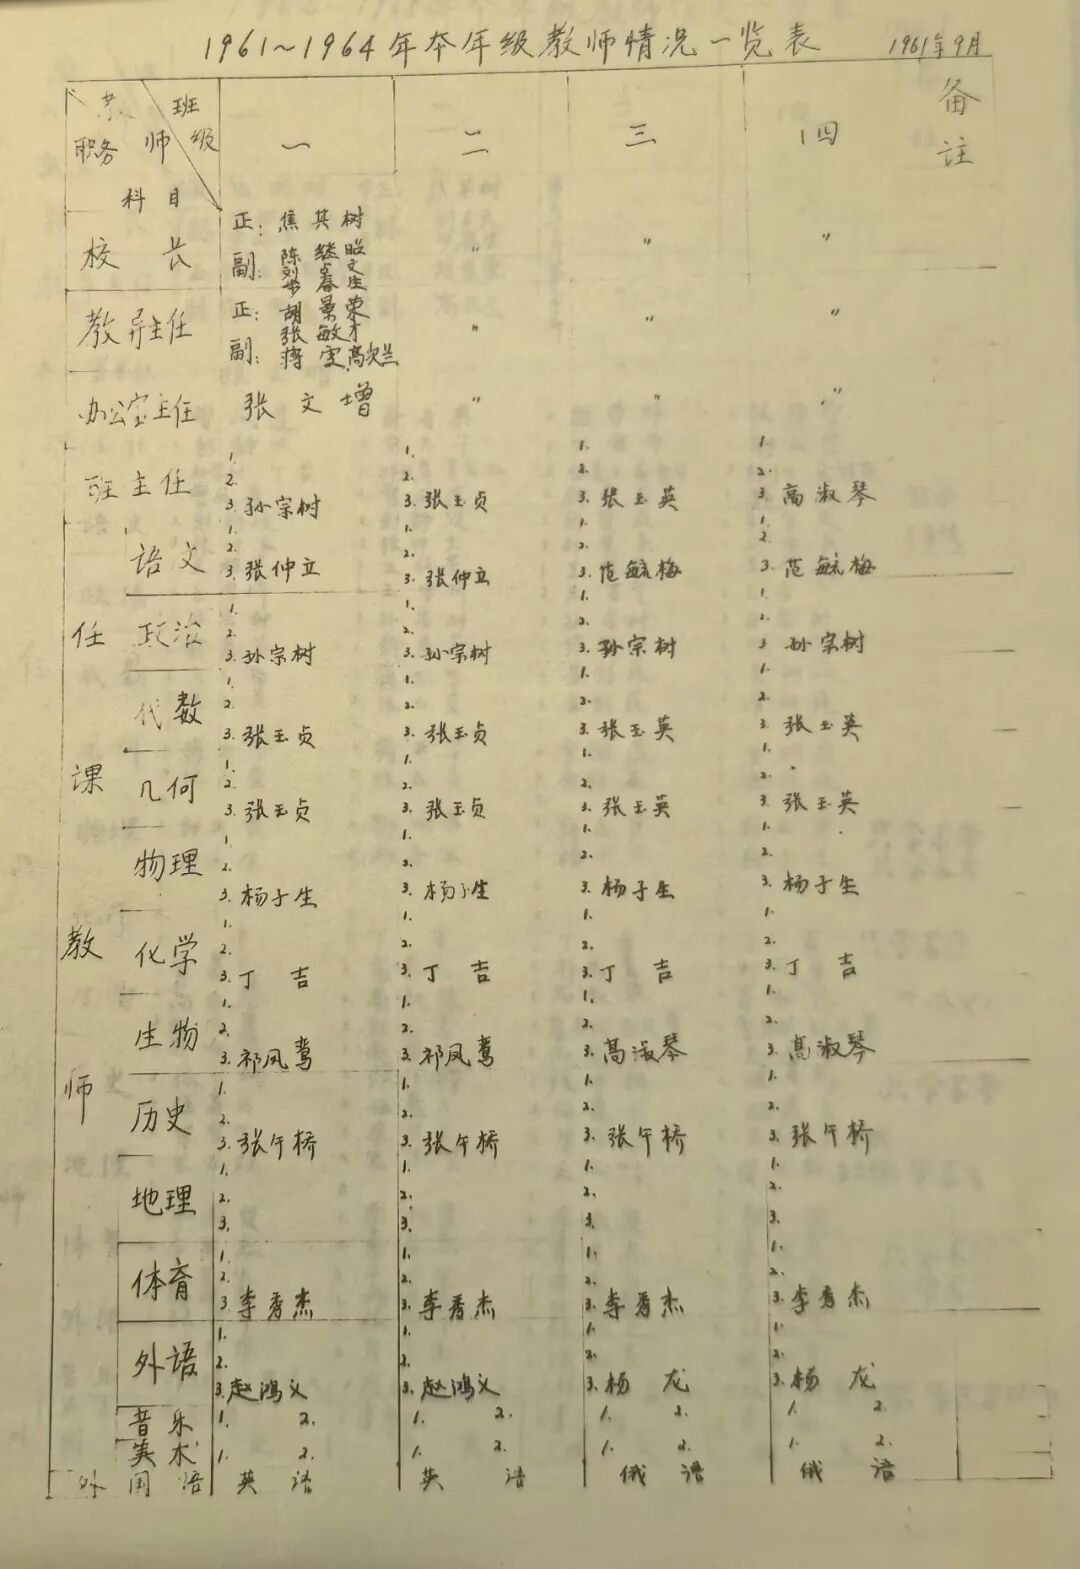 1961~1964年本年级教师情况一览表 1961年9月
班
职务 师 级 一 二 三 四 备注
科目
校长 正: 焦其树 〃 〃 〃
副: 陈继昭
刘春文
生
教导主任 正: 胡景荣 〃 〃 〃
张敏才
副: 蒋雯 高次兰
办公室主任 张文增 〃 〃 〃
班主任 1. 1. 1. 1.
2. 2. 2. 2.
3. 孙宗树 3. 张玉贞 3. 张玉英 3. 高淑琴
任课教师
语文 1. 1. 1. 1.
2. 2. 2. 2.
3. 张仲立 3. 张仲立 3. 范毓梅 3. 范毓梅
政治 1. 1. 1. 1.
2. 2. 2. 2.
3. 孙宗树 3. 孙宗树 3. 孙宗树 3 孙宗树
代数 1. 1. 1. 1.
2. 2. 2. 2.
3. 张玉贞 3. 张玉贞 3. 张玉英 3. 张玉英
几何 1. 1. 1. 1.
2. 2. 2.
3. 张玉贞 3. 张玉贞 3. 张玉英 3. 张玉英
物理 1. 1. 1. 1.
2. 2. 2. 2.
3. 杨子生 3. 杨子生 3. 杨子生 3. 杨子生
化学 1. 1. 1. 1.
2. 2. 2. 2.
3. 丁吉 3. 丁吉 3. 丁吉 3. 丁吉
生物 1. 1. 1. 1.
2. 2. 2. 2.
3. 祁凤鸾 3. 祁凤鸾 3. 高淑琴 3. 高淑琴
历史 1. 1. 1. 1.
2. 2. 2. 2.
3. 张午桥 3. 张午桥 3. 张午桥 3. 张午桥
地理 1. 1. 1. 1.
2. 2. 2. 2.
3. 3. 3. 3.
体育 1. 1. 1. 1.
2. 2. 2. 2.
3. 李秀杰 3. 李秀杰 3. 李秀杰 3. 李秀杰
外语 1. 1. 1. 1.
2. 2. 2. 2.
3. 赵鸿义 3. 赵鸿义 3. 杨龙 3. 杨龙
音乐 1. 2. 1. 2. 1. 2. 1. 2
美术 1. 2. 1. 2. 1. 2. 1. 2.
外国语 英语 英语 俄语 俄语